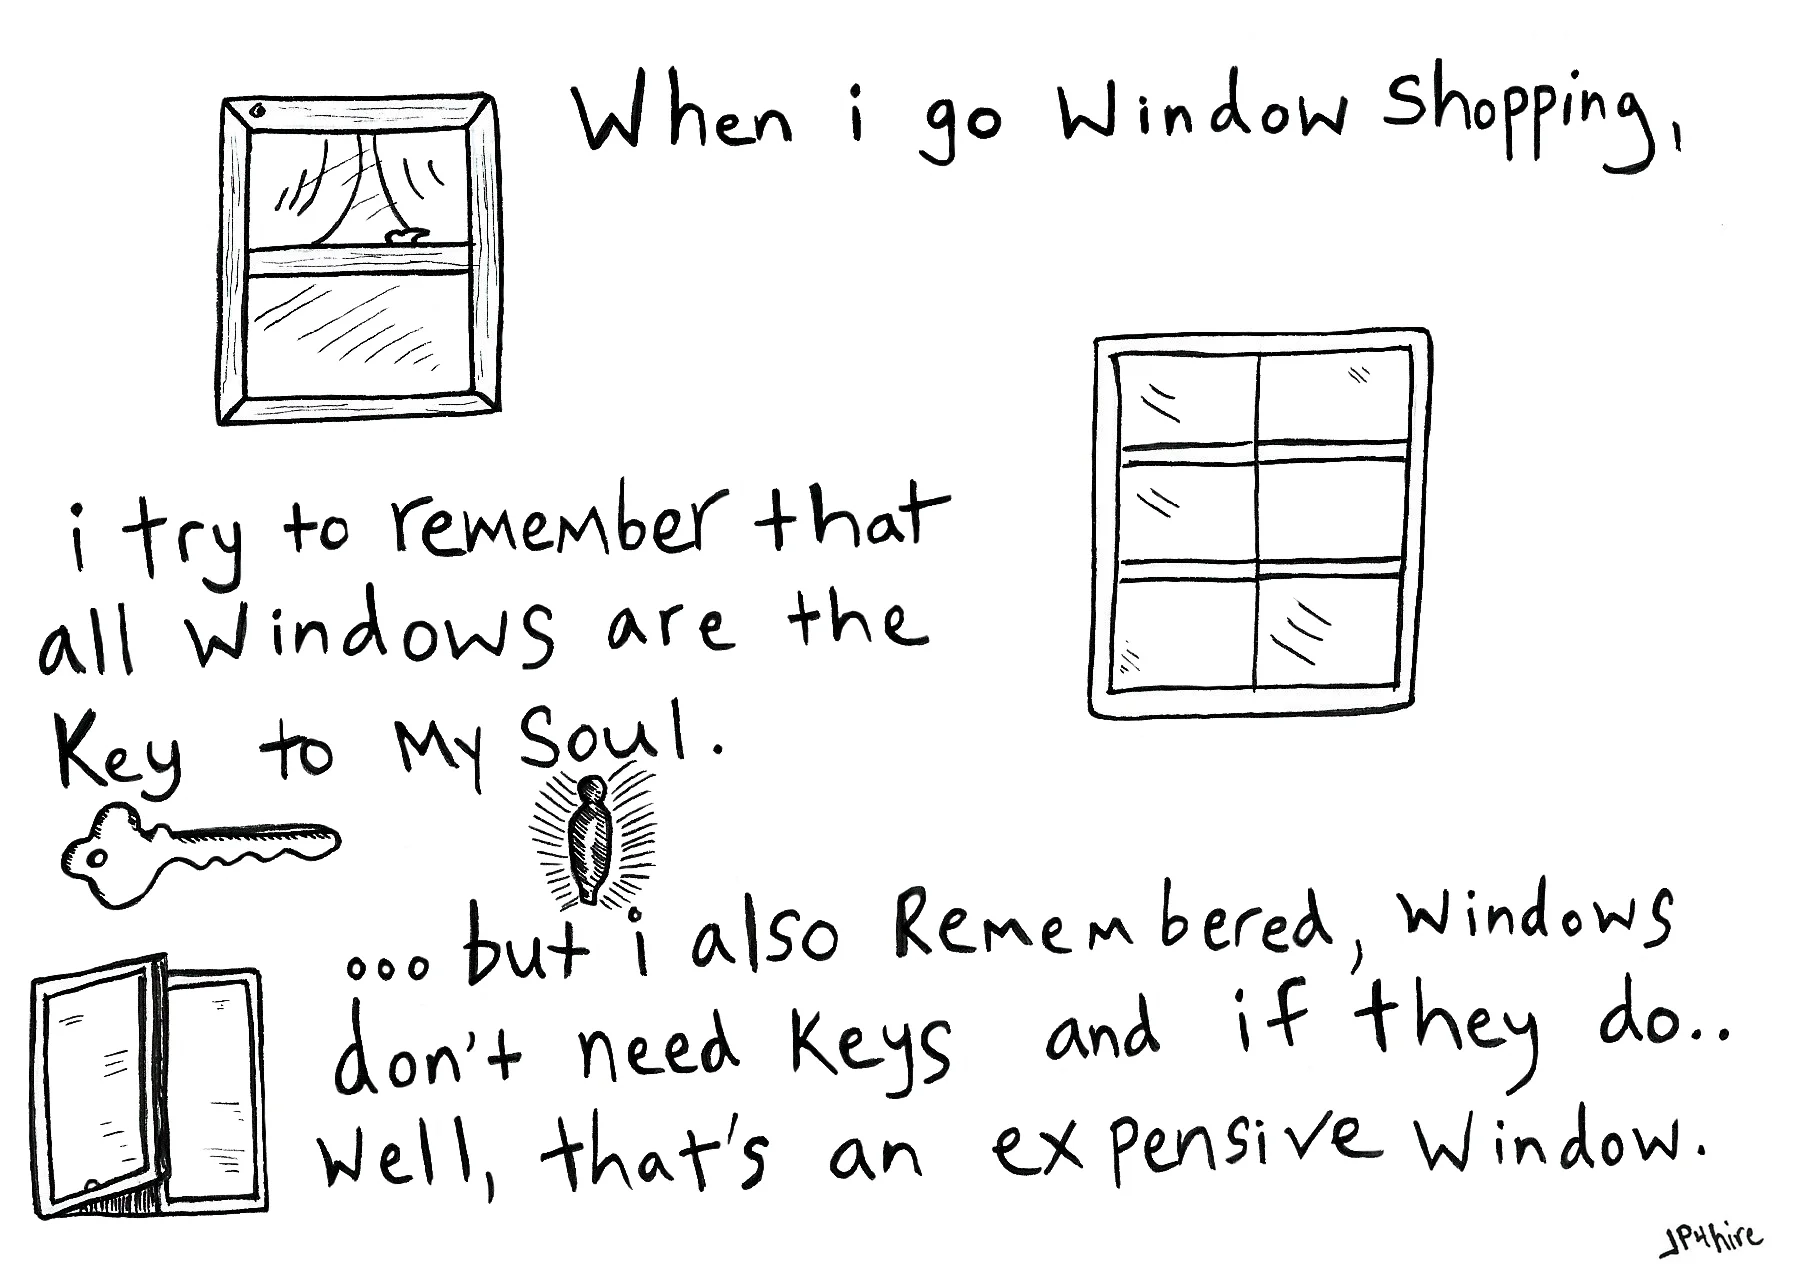 When i go Window Shopping,
i try to remember that
all Windows are the
Key to My Soul.
...but i also Remembered, Windows
don't need Keys and if they do..
Well, that's an expensive Window.
JP4hire